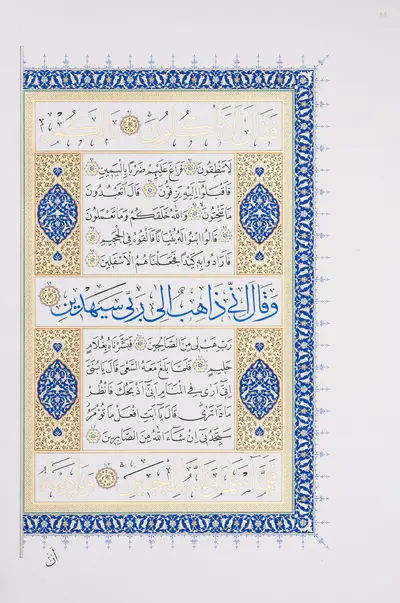 فَقَالَ أَلَا تَأْكُلُونَ ۝ مَا لَكُمْ
لَا تَنْطِقُونَ ۝ فَرَاغَ عَلَيْهِمْ ضَرْبًا بِالْيَمِينِ ۝
فَأَقْبَلُوا إِلَيْهِ يَزِفُّونَ ۝ قَالَ أَتَعْبُدُونَ
مَا تَنْحِتُونَ ۝ وَاللَّهُ خَلَقَكُمْ وَمَا تَعْمَلُونَ
۝ قَالُوا ابْنُوا لَهُ بُنْيَانًا فَأَلْقُوهُ فِي الْجَحِيمِ ۝
فَأَرَادُوا بِهِ كَيْدًا فَجَعَلْنَاهُمُ الْأَسْفَلِينَ ۝
وَقَالَ إِنِّي ذَاهِبٌ إِلَى رَبِّي سَيَهْدِينِ ۝
رَبِّ هَبْ لِي مِنَ الصَّالِحِينَ ۝ فَبَشَّرْنَاهُ بِغُلَامٍ
حَلِيمٍ ۝ فَلَمَّا بَلَغَ مَعَهُ السَّعْيَ قَالَ يَا بُنَيَّ
إِنِّي أَرَى فِي الْمَنَامِ أَنِّي أَذْبَحُكَ فَانْظُرْ
مَاذَا تَرَى قَالَ يَا أَبَتِ افْعَلْ مَا تُؤْمَرُ
سَتَجِدُنِي إِنْ شَاءَ اللَّهُ مِنَ الصَّابِرِينَ ۝
فَلَمَّا أَسْلَمَا وَتَلَّهُ لِلْجَبِينِ ۝ وَنَادَيْنَاهُ
أن